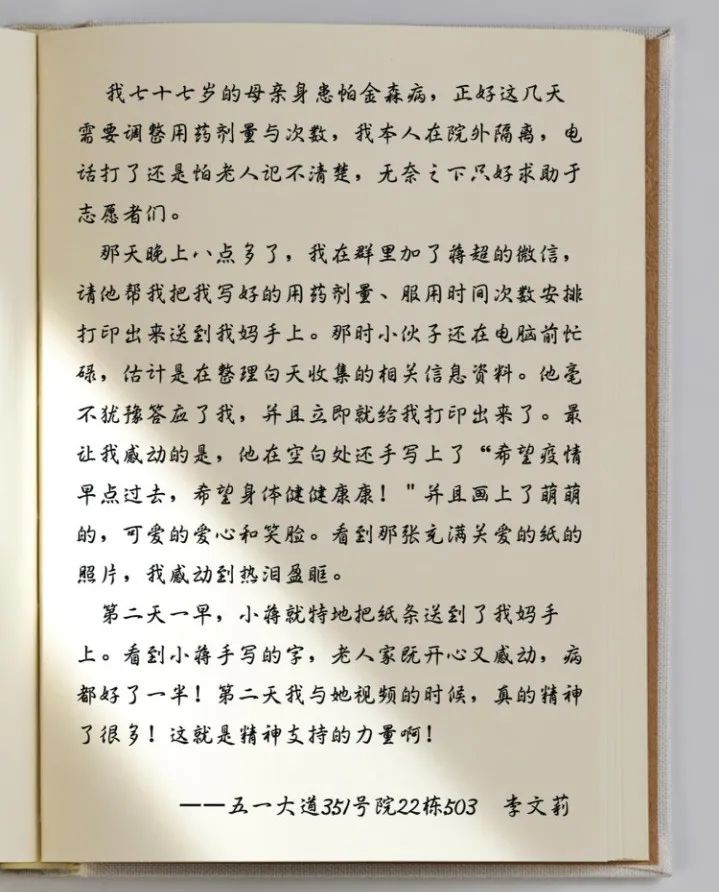 我七十七岁的母亲身患帕金森病，正好这几天
需要调整用药剂量与次数，我本人在院外隔离，电
话打了还是怕老人记不清楚，无奈之下只好求助于
志愿者们。
那天晚上八点多了，我在群里加了蒋超的微信，
请他帮我把我写好的用药剂量、服用时间次数安排
打印出来送到我妈手上。那时小伙子还在电脑前忙
碌，估计是在整理白天收集的相关信息资料。他毫
不犹豫答应了我，并且立即就给我打印出来了。最
让我感动的是，他在空白处还手写上了“希望疫情
早点过去，希望身体健健康康！"并且画上了萌萌
的，可爱的爱心和笑脸。看到那张充满关爱的纸的
照片，我感动到热泪盈眶。
第二天一早，小蒋就特地把纸条送到了我妈手
上。看到小蒋手写的字，老人家既开心又感动，病
都好了一半！第二天我与她视频的时候，真的精神
了很多！这就是精神支持的力量啊！
——五一大道351号院22栋503 李文莉